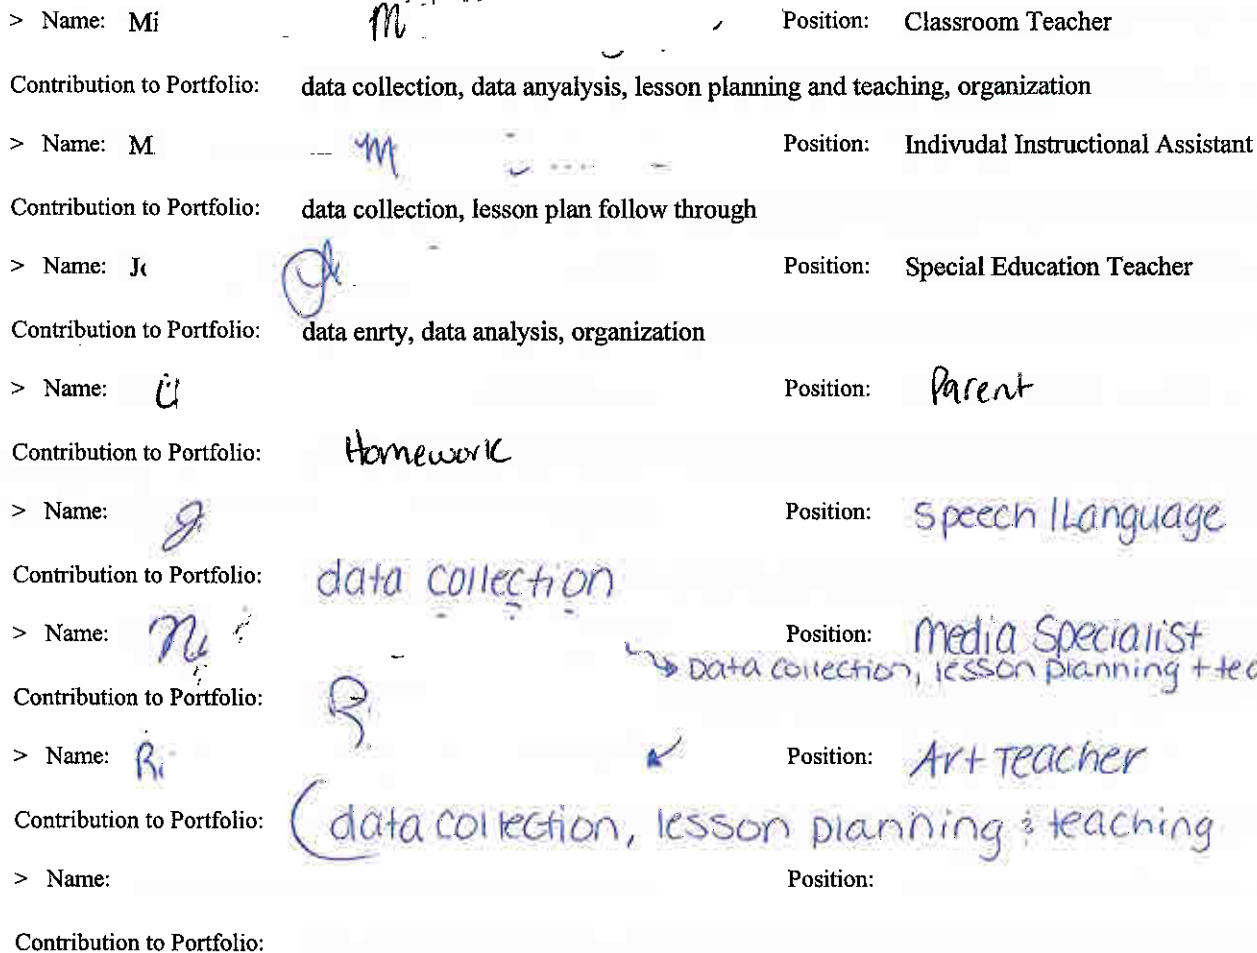 > Name: Mi M Position: Classroom Teacher
Contribution to Portfolio: data collection, data anyalysis, lesson planning and teaching, organization
> Name: M M Position: Indivudal Instructional Assistant
Contribution to Portfolio: data collection, lesson plan follow through
> Name: Position: Special Education Teacher
Contribution to Portfolio: data enrty, data analysis, organization
> Name: Position: Parent
Contribution to Portfolio: Homework
> Name: Position: Speech/Language
Contribution to Portfolio: data collection
> Name: Position: Media Specialist
Data collection, lesson planning + tea
Contribution to Portfolio: R
> Name: Ri Position: Art Teacher
Contribution to Portfolio: data collection, lesson planning & teaching
> Name: Position:
Contribution to Portfolio: